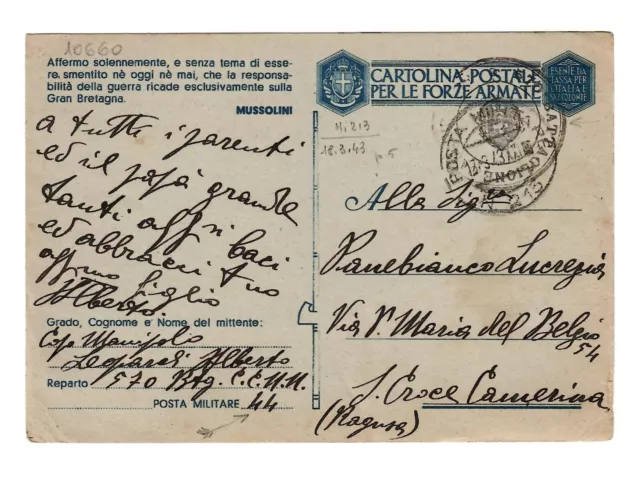 10660
Affermo solennemente, e senza tema di esse-
re smentito nè oggi nè mai, che la responsa-
bilità della guerra ricade esclusivamente sulla
Gran Bretagna.
MUSSOLINI
a tutti i parenti
ed il papà grande
tanti baci
ed abbracci tuo
figlio
Alberto.
Grado, Cognome e Nome del mittente:
Capo Manipolo
Leopardi Alberto
Reparto 570 Btg. CC.NN.
POSTA MILITARE 44
CARTOLINA POSTALE
PER LE FORZE ARMATE
ESENTE DA
TASSA PER
L'ITALIA E
SUE COLONIE
N. 213
18.3.43
p. 5
POSTA MILITARE
213
Alla Sig.ra
Panebianco Lucrezia
Via S. Maria del Belgio
54
S. Croce Camerina
(Ragusa)